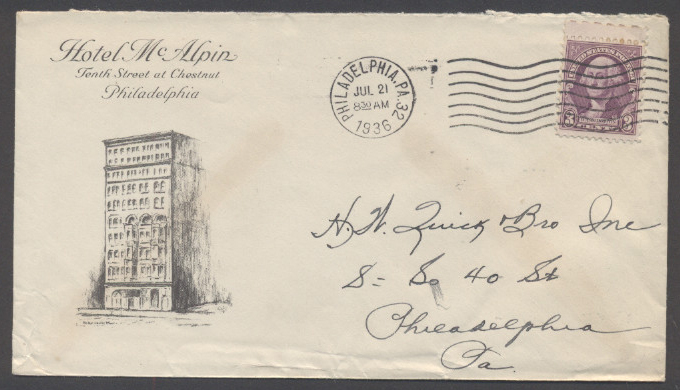 Hotel McAlpin
Tenth Street at Chestnut
Philadelphia
PHILADELPHIA, PA. 32
JUL 21
830 AM
1936
UNITED STATES POSTAGE
3 3
H. W. Quick & Bro Inc
8 = So 40 St
Philadelphia
Pa.